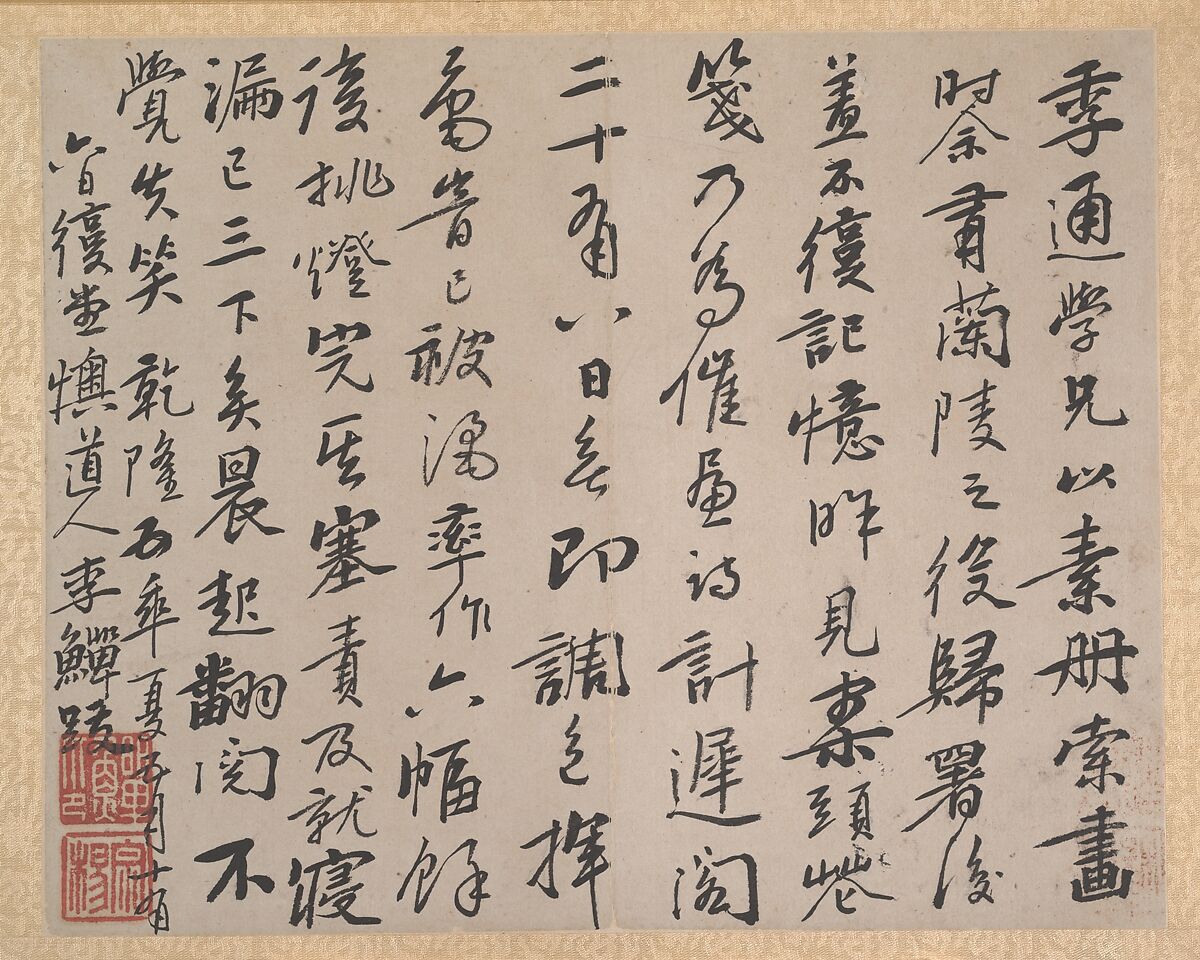 季通學兄以素册索畫
時余有蘭陵之役歸署後
蓋不復記憶昨見案頭華
箋乃為催畫詩計遲閣
二十有八日矣即調色揮
毫昔已被酒率作六幅餘
後挑燈完其塞責及就寢
漏已三下矣晨起翻閱不
覺失笑 乾隆五年夏五月十有
六日復堂懊道人李鱓跋